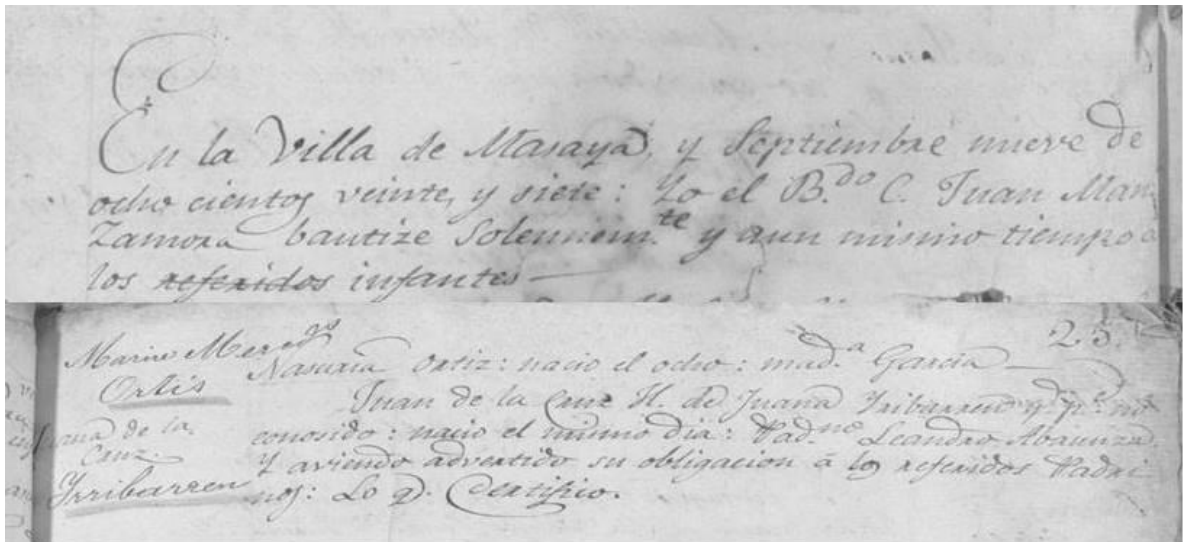 En la Villa de Masaya, y Septiembre nueve de
ocho cientos veinte, y siete: Yo el B.do C. Juan Man.
Zamora bautize Solennem.te y aun mismo tiempo a
los referidos infantes
25.
Maria Merceds
Ortis
Nasaria Ortiz: nacio el ocho: mad.a Garcia
Juan de la Cruz H. de Juana Yribarren y d p.e no
conosido: nacio el mismo dia: Pad.no Leandro Abaunza.
Y aviendo advertido su obligacion â los referidos Padri
nos: Lo q.d Certifico.
de la
Cruz.
Yrribarren